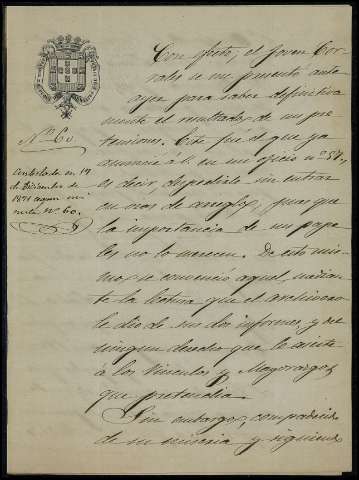 Nº 60
Contestada en 19
de Diciembre de
1871 según mi-
nuta Nº 60.
Con efecto, el joven Cor-
rales se me presentó ante
ayer para saber definitiva
mente el resultado de sus pre
tensiones. Este fué el que ya
anuncié á V. en mi oficio nº 57,
es decir, despedirle sin entrar
en otros de arreglo, pues que
la importancia de sus pape
les no lo merecen. De esto mis
mo se convenció aquel, median
te la lectura que el archivero
le dió de sus dos informes, y de
ningun derecho que le asista
á los Vinculos y Mayorazgos
que pretendia.
Sin embargo, compadecido
de su miseria y siguiendo